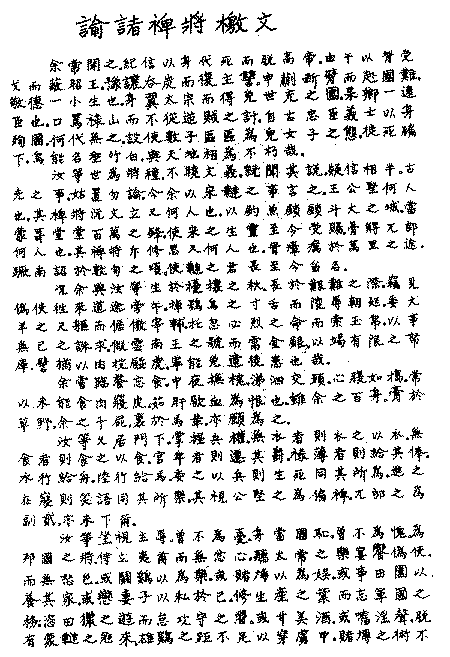 諭諸裨將檄文
余常聞之。紀信以身代死而脫高帝。由于以背受
戈而蔽昭王。豫讓吞炭而復主讐。申蒯斷臂而赴國難。
敬德一小生也。身翼太宗而得免世充之圍。杲卿一遠
臣也。口罵祿山而不從逆賊之計。自古忠臣義士以身
殉國。何代無之。設使數子區區為兒女子之態。徒死牖
下。烏能名垂竹白。與天地相為不朽哉。
汝等世為將種。不曉文義。既聞其說。疑信相半。古
先之事。姑置勿論。今余以宋韃之事言之。王公堅何人
也。其裨將阮文立又何人也。以釣魚顆顆斗大之城。當
蒙哥堂堂百萬之鋒。使宋之生靈至今受賜。骨待兀郎
何人也。其裨將斤修思又何人也。冒瘴癘於萬里之途。
蹶南詔於數旬之頃。使韃之君長至今留名。
況余與汝等生於擾攘之秋。長於艱難之際。竊見
偽使往來道途旁午。掉鴞烏之寸舌而陵辱朝廷。委犬
羊之尺軀而倨傲宰輔。托忽必烈之命而索玉帛。以事
無已之誅求。假雲南王之號而需金銀。以竭有限之帑
庫。譬猶以肉投餒虎。寧能免遺後患也哉。
余常臨餐忘食。中夜撫枕。涕泗交頤。心腹如搗。常
以未能食肉寢皮。茹肝飲血為恨也。雖余之百身。膏於
草野。余之千屍。裹於馬革。亦願為之。
汝等久居門下。掌握兵權。無衣者則衣之以衣。無
食者則食之以食。官卑者則遷其爵。祿薄者則給其俸。
水行給舟。陸行給馬。委之以兵則生死同其所為。進之
在寢則笑語同其所樂。其視公堅之為偏裨。兀郎之為
副貳。亦未下爾。
汝等坐視主辱。曾不為憂。身當國恥。曾不為愧。為
邦國之將。侍立夷酋而無忿心。聽太常之樂宴饗偽使。
而無怒色。或鬪鷄以為樂。或賭博以為娛。或事田園以
養其家。或戀妻子以私於己。修生產之業而忘軍國之
務。恣田獵之遊而怠攻守之習。或甘美酒。或嗜淫聲。脫
有蒙韃之寇來。雄鷄之距不足以穿虜甲。賭博之術不